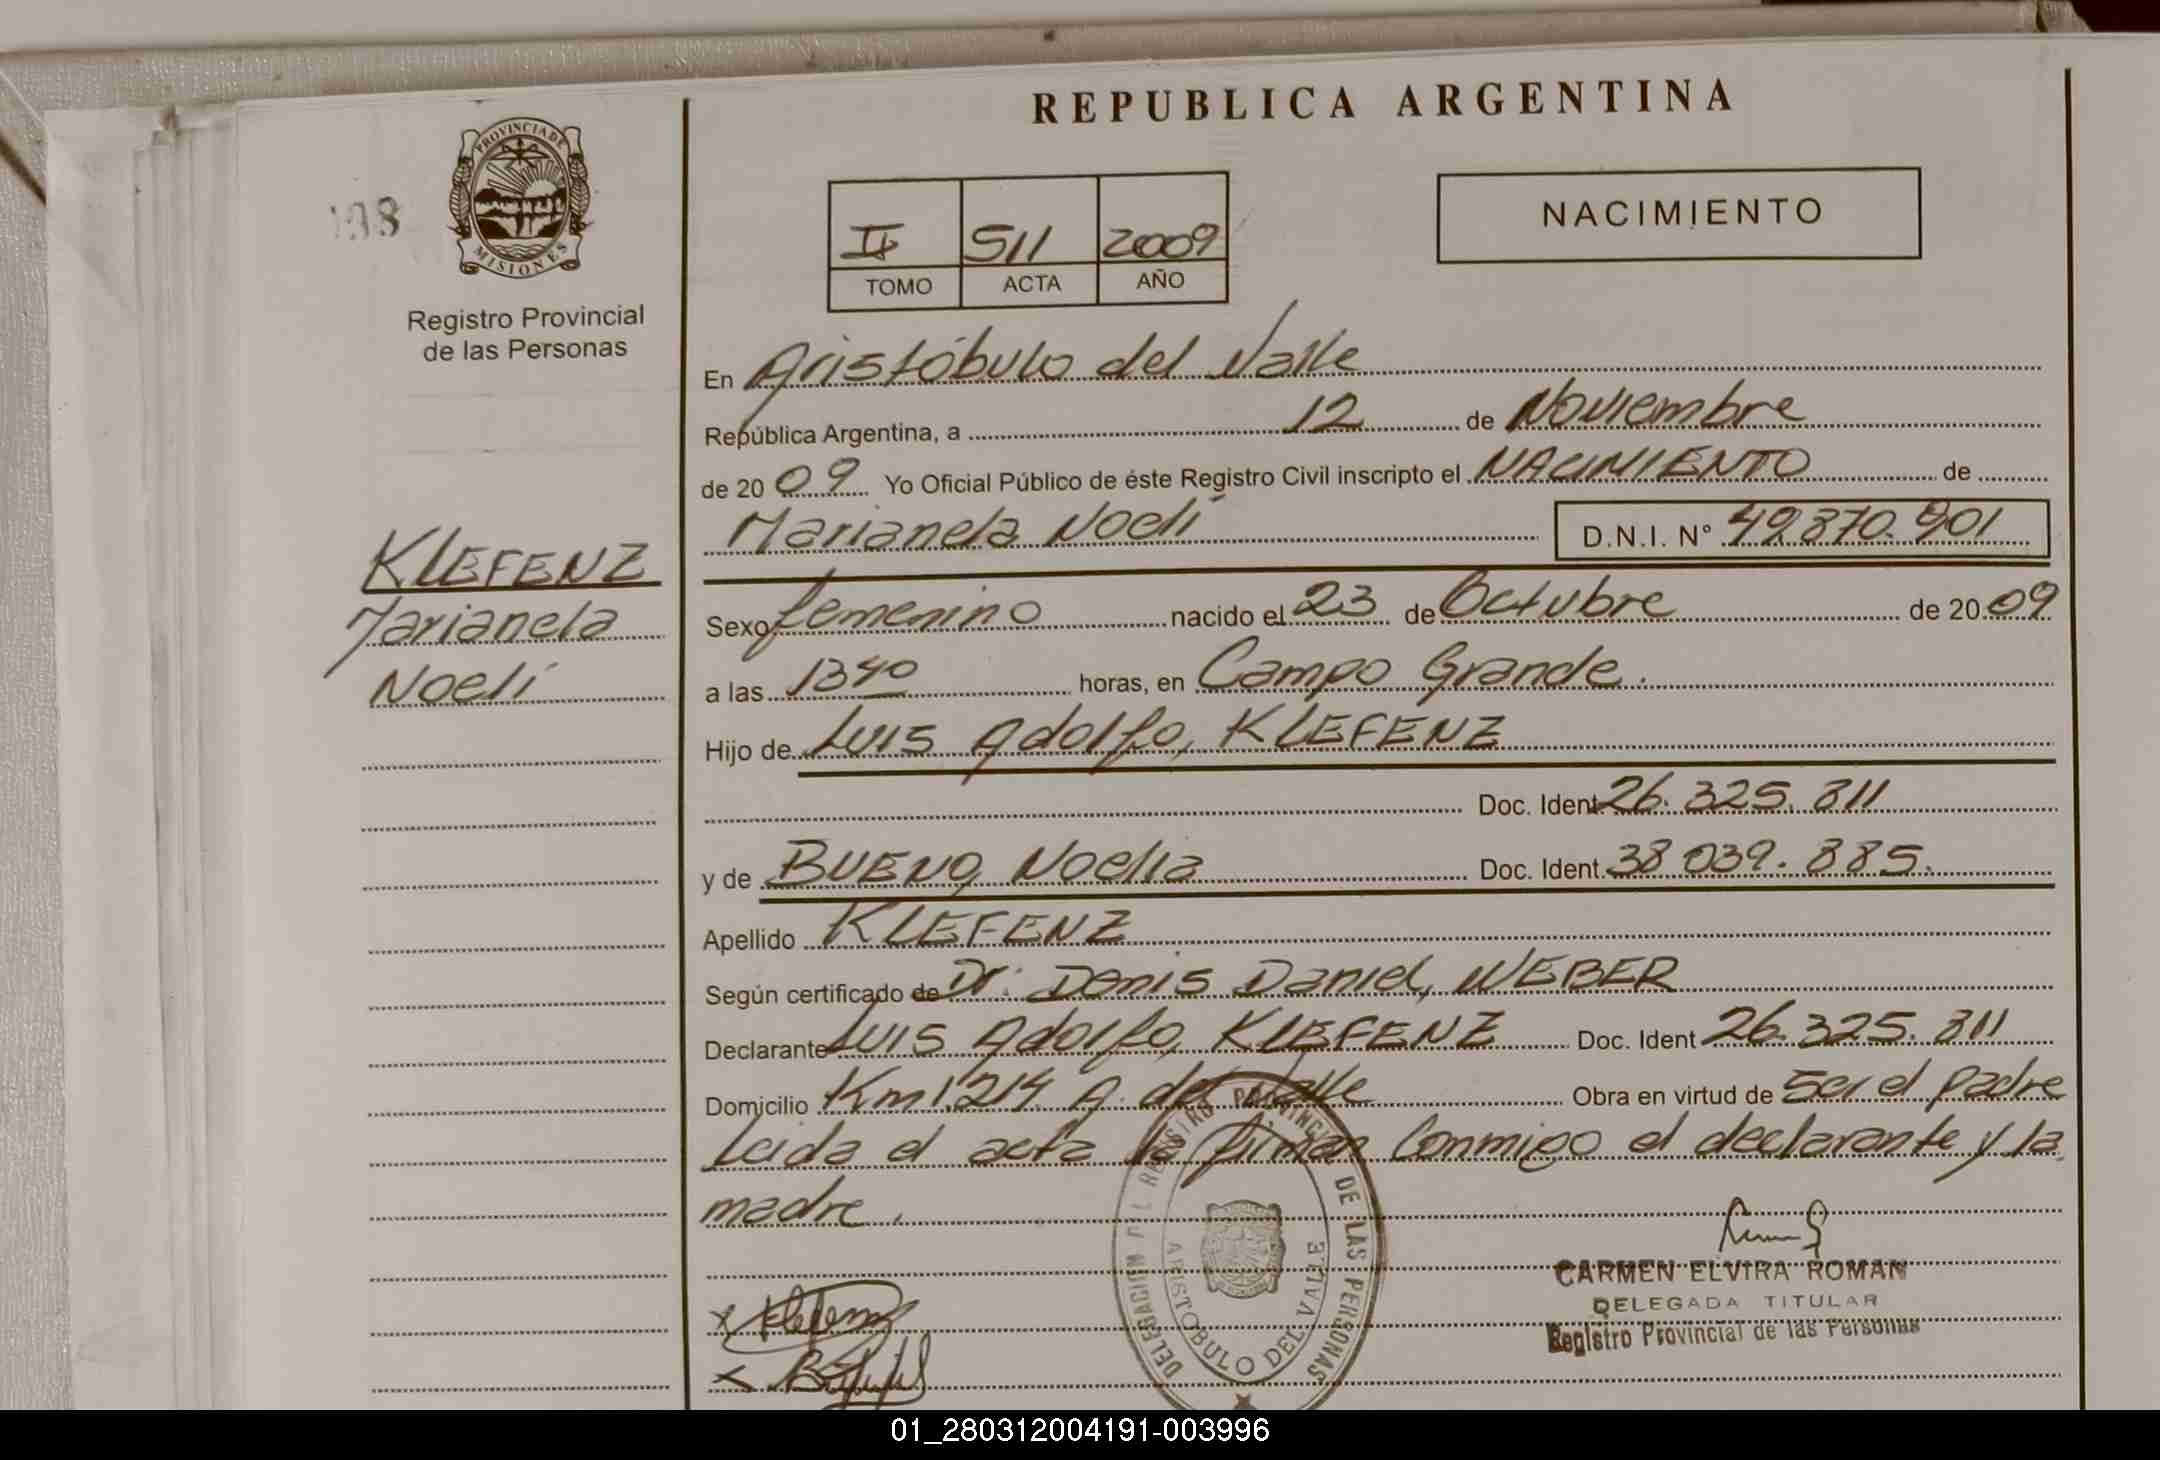 REPUBLICA ARGENTINA
PROVINCIA DE
MISIONES
Registro Provincial
de las Personas
II 511 2009
TOMO ACTA AÑO
NACIMIENTO
En Aristóbulo del Valle
República Argentina, a 12 de Noviembre
de 2009 Yo Oficial Público de éste Registro Civil inscripto el NACIMIENTO de
Marianela Noelí D.N.I. N° 49.870.901
KLEFENZ
Marianela
Noelí
Sexo femenino nacido el 23 de Octubre de 2009
a las 13 40 horas, en Campo Grande.
Hijo de Luis Adolfo, KLEFENZ
Doc. Ident. 26.325.811
y de BUENO, Noelia Doc. Ident. 38 039.885.
Apellido KLEFENZ
Según certificado de Dr. Denis Daniel, WEBER
Declarante Luis Adolfo, KLEFENZ Doc. Ident 26.325.811
Domicilio Km 1.214 A. del Valle Obra en virtud de ser el padre
Leida el acta la firman conmigo el declarante y la
madre.
DELEGACION DEL REGISTRO PROVINCIAL DE LAS PERSONAS
ARISTOBULO DEL VALLE
CARMEN ELVIRA ROMAN
DELEGADA TITULAR
Registro Provincial de las Personas
x Klefenz
x
01_280312004191-003996